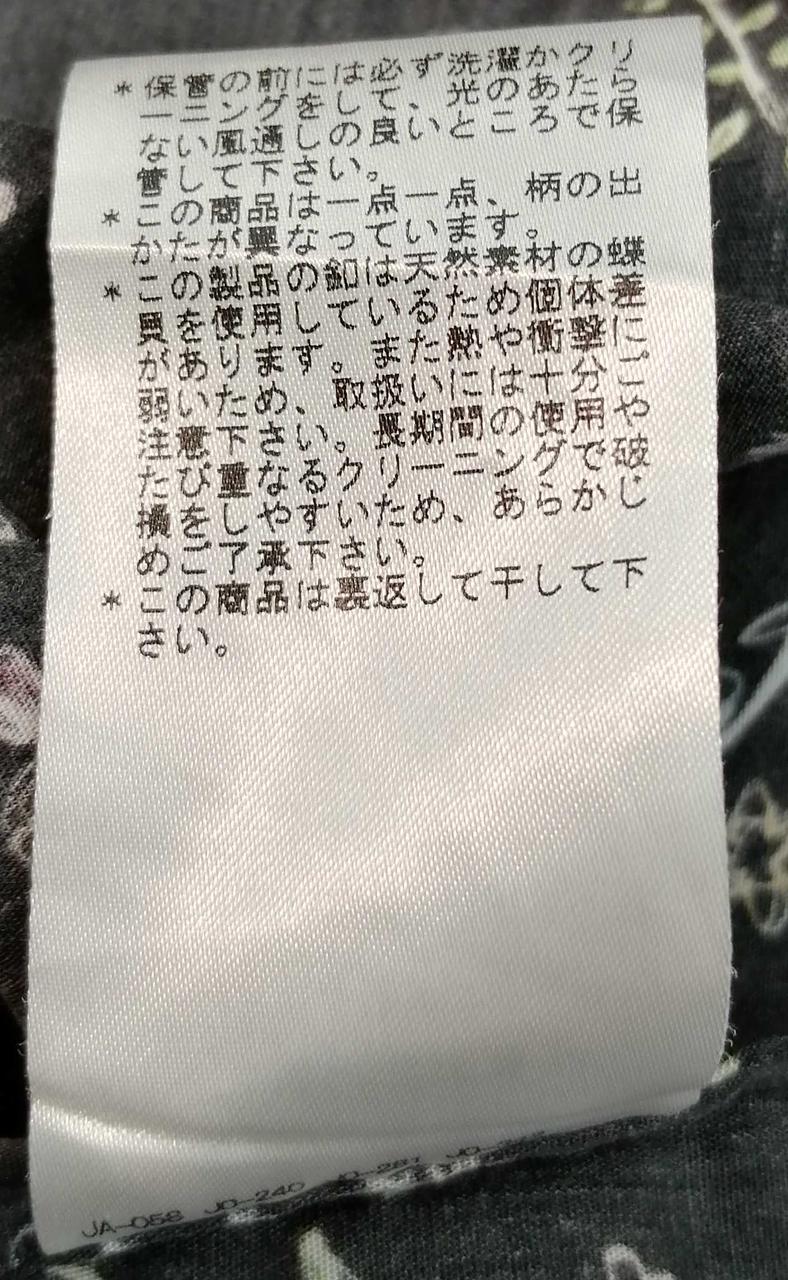 ＊保管の前には必ず洗濯かクリ
ーニングをして、光のあたら
ない風通しの良いところで保
管して下さい。
＊この商品は一点一点、柄の出
かたが異なっています。
＊この製品の釦は天然素材の蝶
貝を使用しているため個体差
があります。また熱や衝撃に
弱いため、取扱いには十分ご
注意下さい。長期間の使用や
たび重なるクリーニングで破
損をしやすいため、あらかじ
めご了承下さい。
＊この商品は裏返して干して下
さい。
JA-058 JO-240 JO-281